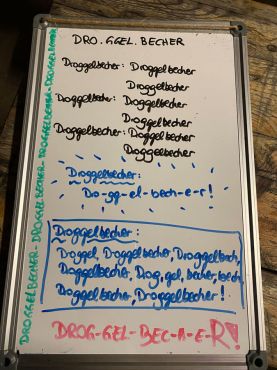 DRO.GGEL.BECHER
Droggelbecher: Droggelbecher
Droggelbecher
Droggelbecher: Droggelbecher
Droggelbecher
Droggelbecher: Droggelbecher
Droggelbecher
Droggelbecher:
Do-gg-el-bech-e-r!
Droggelbecher:
Droggel, Droggelbecher, Droggelbech,
Droggelbecher, Drog, gel, becher, bech,
Droggelbecher, Droggelbecher!
DROG-GEL-BEC-H-E-R!
DROGGELBECHER-DROGGELBECHER-DROGGELBECHER-DROGGELBECHER